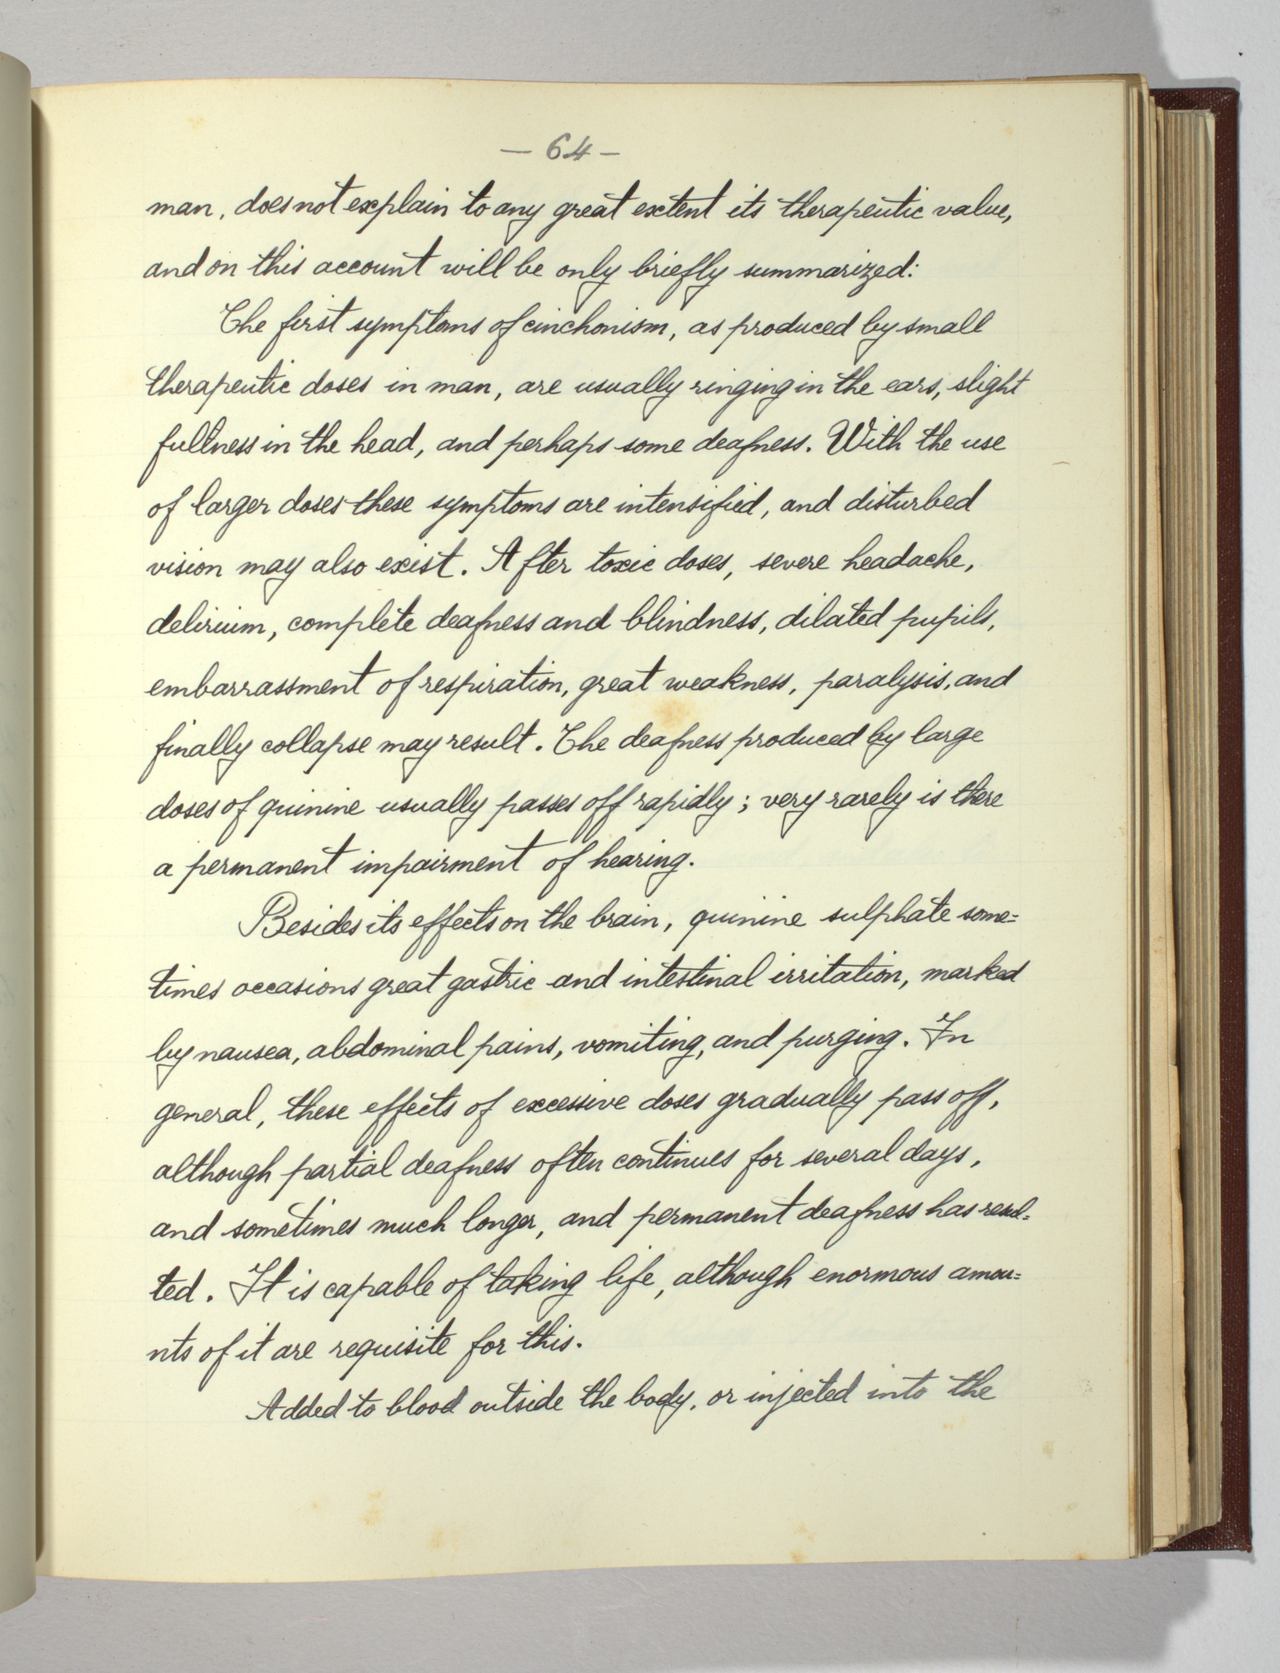 — 64 —
man, does not explain to any great extent its therapeutic value,
and on this account will be only briefly summarized:
The first symptoms of cinchonism, as produced by small
therapeutic doses in man, are usually ringing in the ears, slight
fullness in the head, and perhaps some deafness. With the use
of larger doses these symptoms are intensified, and disturbed
vision may also exist. After toxic doses, severe headache,
delirium, complete deafness and blindness, dilated pupils,
embarrassment of respiration, great weakness, paralysis, and
finally collapse may result. The deafness produced by large
doses of quinine usually passes off rapidly; very rarely is there
a permanent impairment of hearing.
Besides its effects on the brain, quinine sulphate some=
times occasions great gastric and intestinal irritation, marked
by nausea, abdominal pains, vomiting, and purging. In
general, these effects of excessive doses gradually pass off,
although partial deafness often continues for several days,
and sometimes much longer, and permanent deafness has resul=
ted. It is capable of taking life, although enormous amou=
nts of it are requisite for this.
Added to blood outside the body, or injected into the